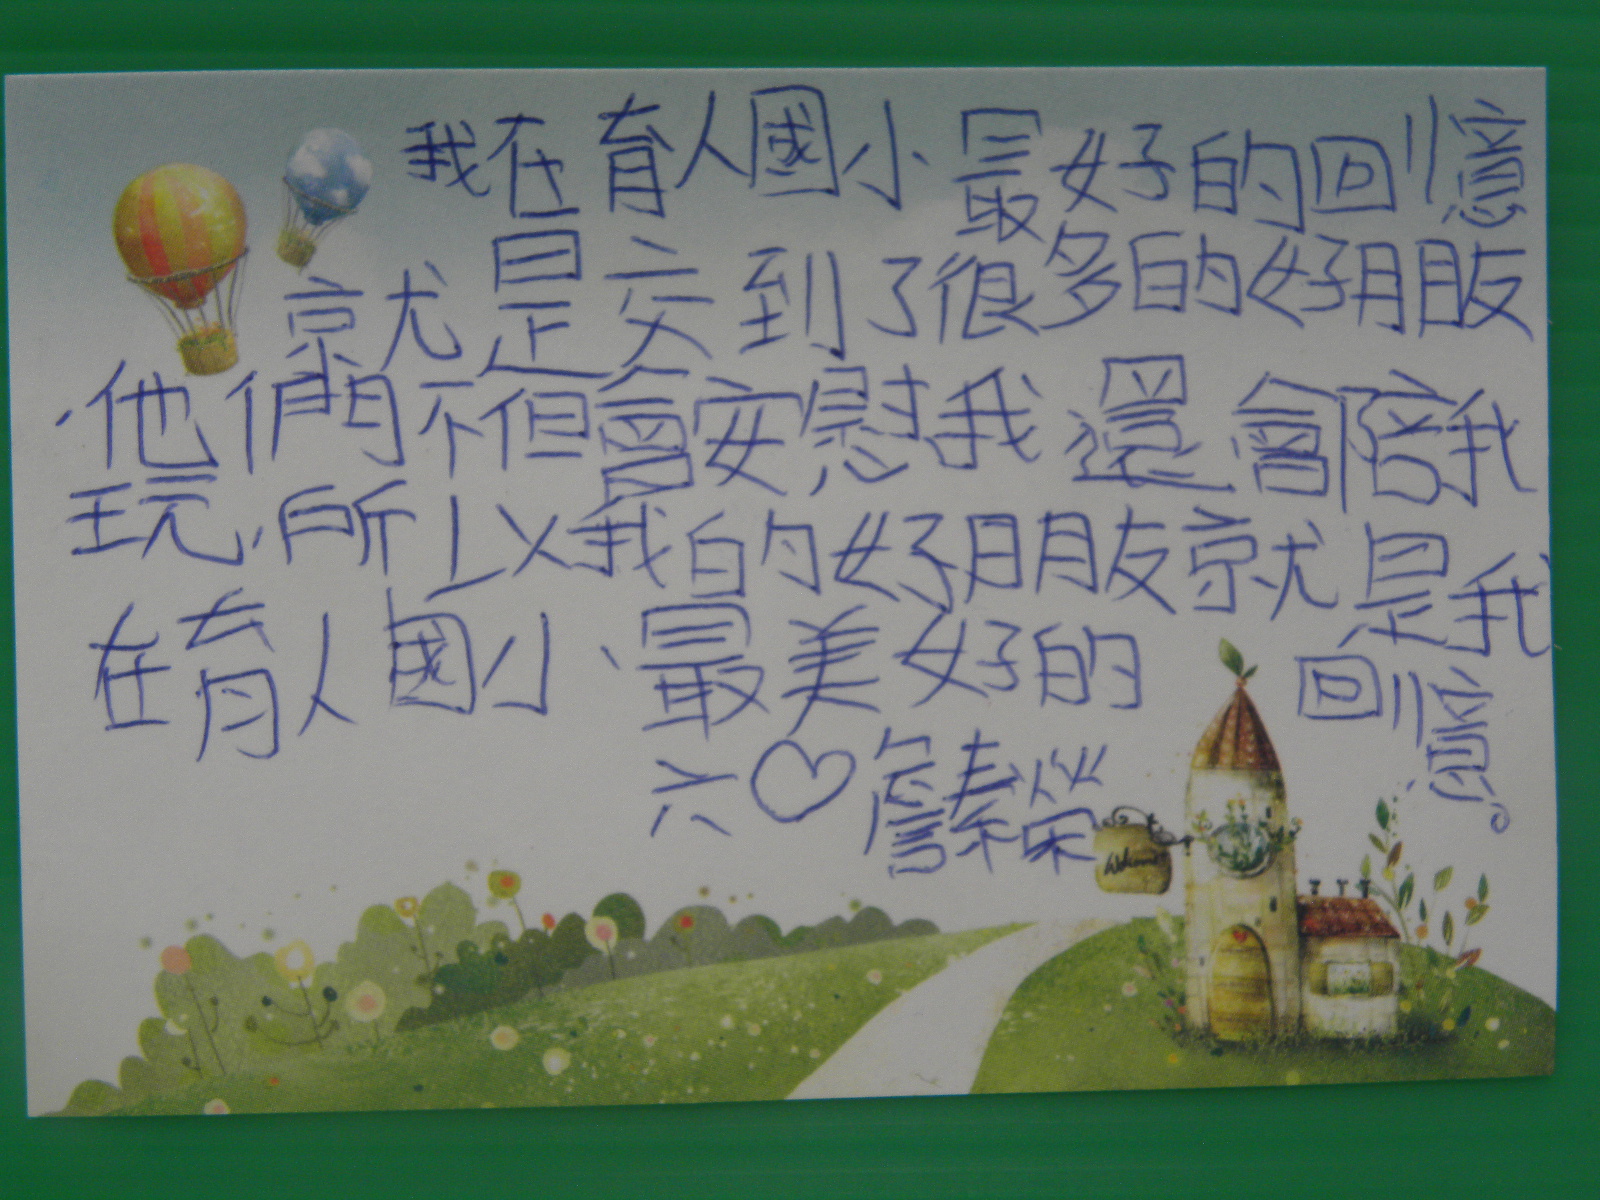 我在育人國小最好的回憶
就是交到了很多的好朋友
，他們不但會安慰我還會陪我
玩，所以我的好朋友就是我
在育人國小、最美好的回憶。
六♡詹素榮
Welcome